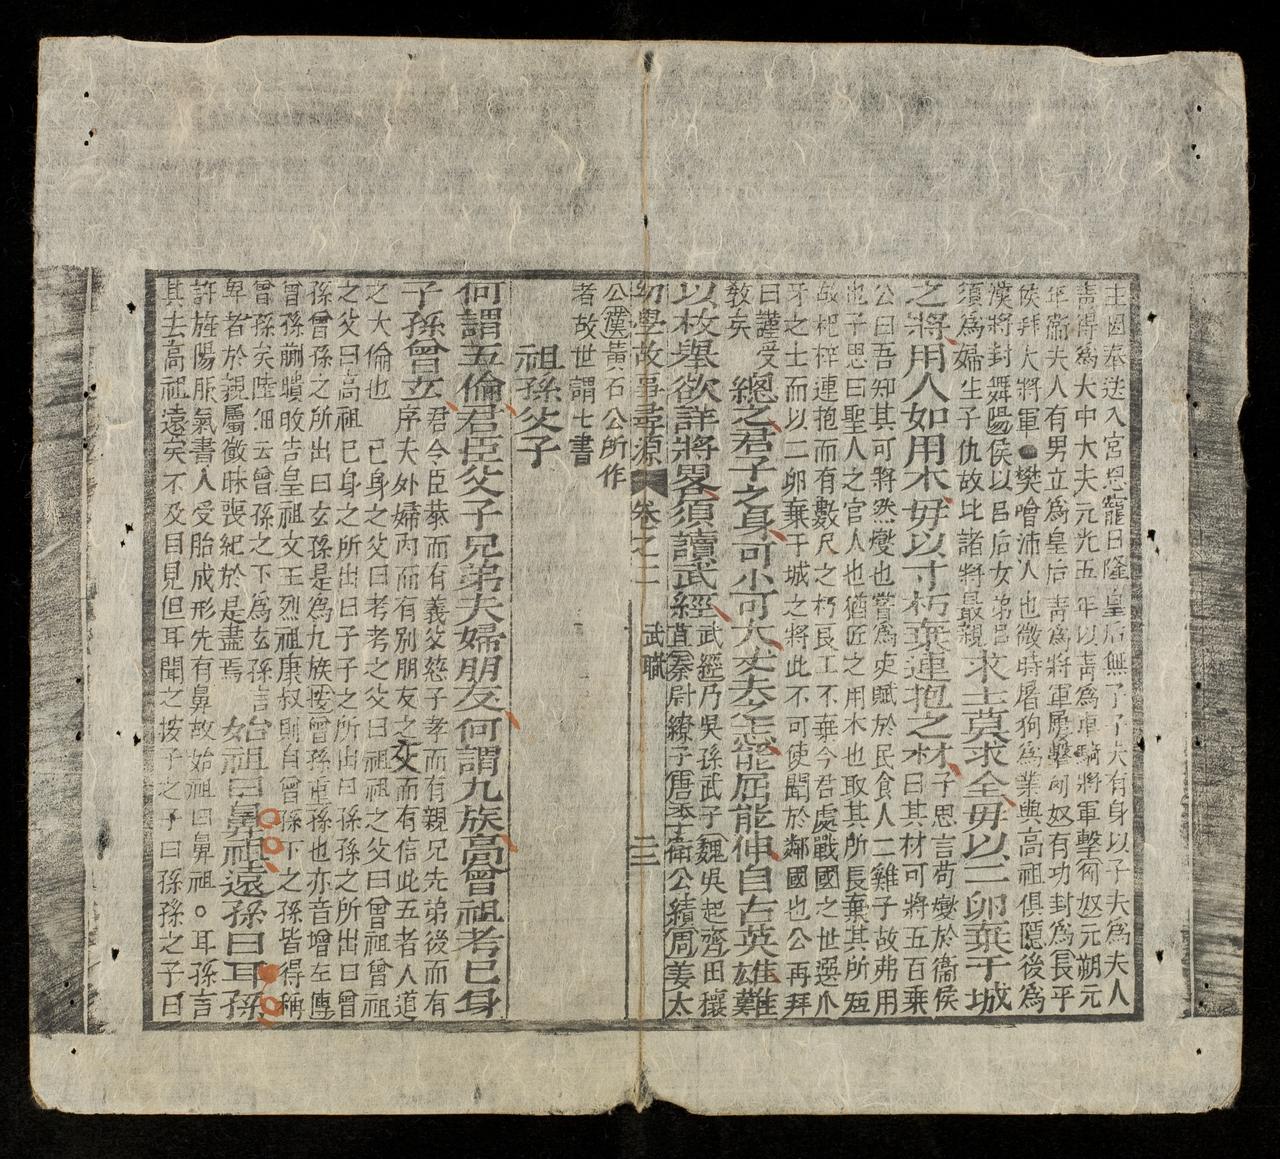 主因奉送入宮恩寵日隆皇后無子子夫有身以子夫爲夫人
靑得爲大中大夫元光五年以靑爲車騎將軍擊匈奴元朔元
年衞夫人有男立爲皇后靑爲將軍屢擊匈奴有功封爲長平
侯拜大將軍●樊噲沛人也微時屠狗爲業與高祖俱隱後爲
漢將封舞陽侯以呂后女弟呂
須爲婦生子伉故比諸將最親求士莫求全毋以二卵棄干城
之將用人如用木毋以寸朽棄連抱之材子思言苟變於衞侯
曰其材可將五百乘
公曰吾知其可將然變也嘗爲吏賦於民食人二雞子故弗用
也子思曰聖人之官人也猶匠之用木也取其所長棄其所短
故杞梓連抱而有數尺之朽良工不棄今君處戰國之世選爪
牙之士而以二卵棄干城之將此不可使聞於鄰國也公再拜
曰謹受
敎矣總之君子之身可小可大丈夫之志能屈能伸自古英雄難
以枚擧欲詳將畧須讀武經武經乃吳孫武子魏吳起齊田穰
苴秦尉繚子唐李衞公續周姜太
幼學故事尋源 卷之二 武職 三
公漢黃石公所作
者故世謂七書
祖孫父子
何謂五倫君臣父子兄弟夫婦朋友何謂九族高曾祖考己身
子孫曾玄君令臣恭而有義父慈子孝而有親兄先弟後而有
序夫外婦內而有別朋友之交而有信此五者人道
之大倫也 己身之父曰考考之父曰祖祖之父曰曾祖曾祖
之父曰高祖己身之所出曰子子之所出曰孫孫之所出曰曾
孫曾孫之所出曰玄孫是爲九族按曾孫重孫也亦音增左傳
曾孫蒯聵敢告皇祖文王烈祖康叔則自曾孫下之孫皆得稱
曾孫矣陸佃云曾孫之下爲玄孫言
卑者於親屬微昧喪紀於是盡焉始祖曰鼻祖遠孫曰耳孫
許旌陽脈氣書人受胎成形先有鼻故始祖曰鼻祖○耳孫言
其去高祖遠矣不及目見但耳聞之按子之子曰孫孫之子曰